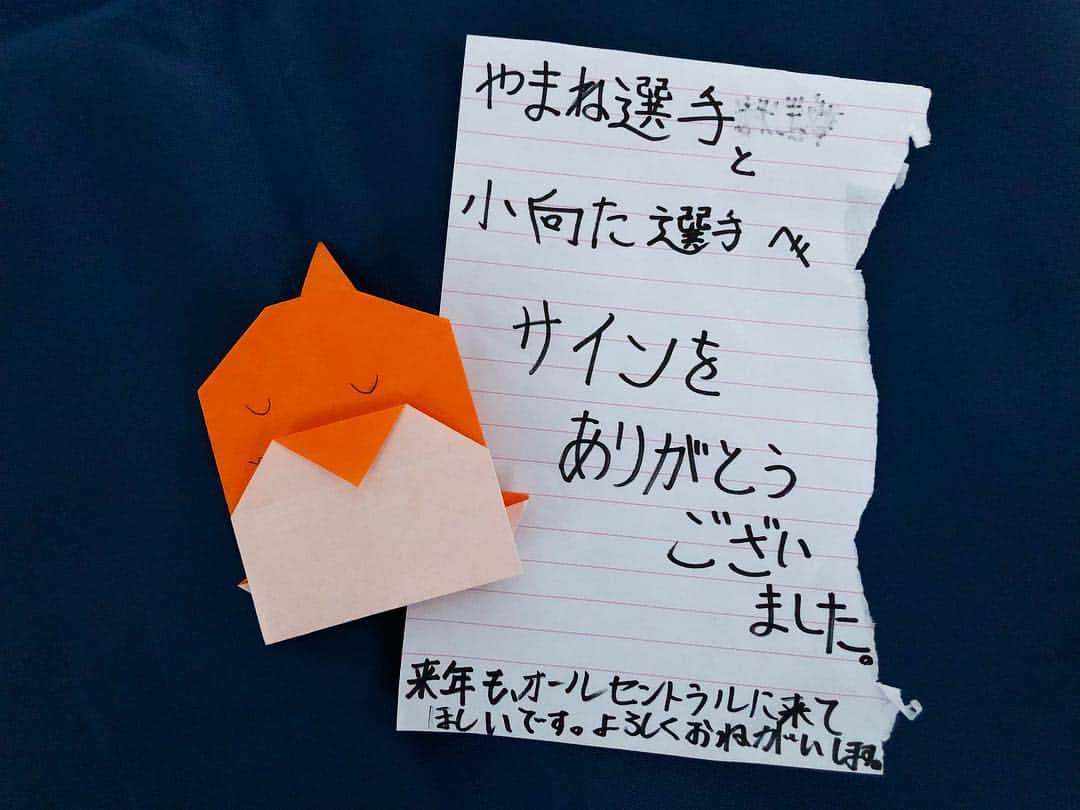 やまね選手
と
小向た選手へ
サインを
ありがとう
ござい
ました。
来年も、オールセントラルに来て
ほしいです。よろしくおねがいします。